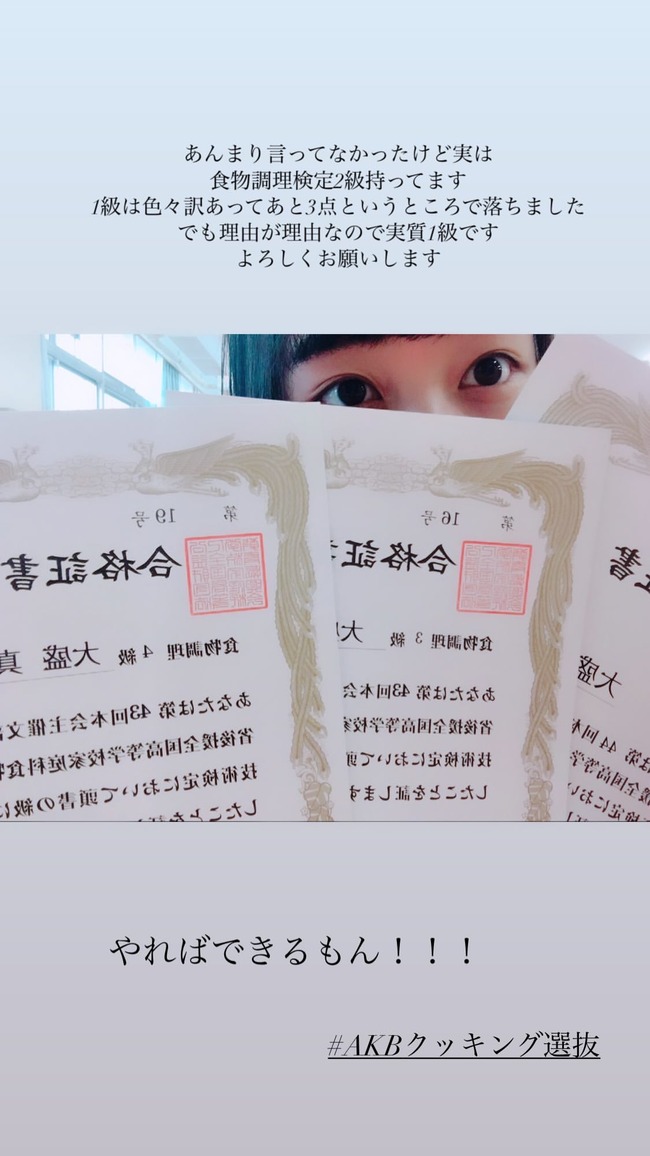 あんまり言ってなかったけど実は
食物調理検定2級持ってます
1級は色々訳あってあと3点というところで落ちました
でも理由が理由なので実質1級です
よろしくお願いします
第 19号
合格証書
食物調理 4 級 大盛 真
あなたは第 43回本会主催文
省後援全国高等学校家庭科食物
技術検定において頭書の級に
したことを証
第 16号
合格証
食物調理 3 級 大
あなたは第 43回本会
省後援全国高等学校家
技術検定において
したことを証します
書
大盛
第 44 回本
全国高等学
定におい
やればできるもん！！！
#AKBクッキング選抜